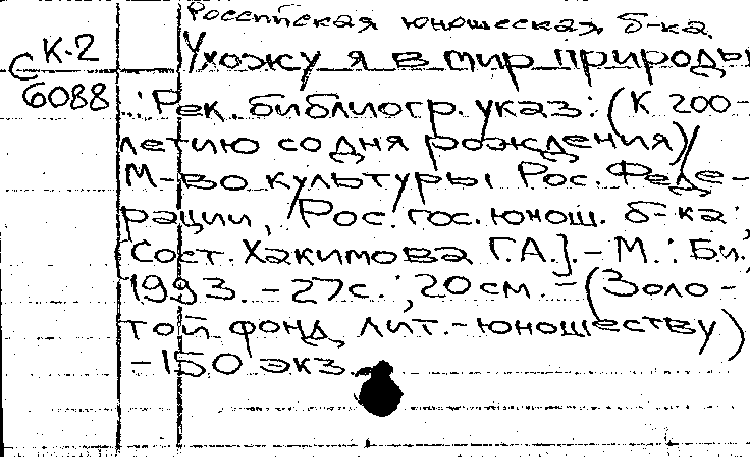 Российская юношеская б-ка
К-2
С
6088
Ухожу я в мир природы
: Рек. библиогр. указ: (К 200-
летию со дня рождения)/
М-во культуры Рос. Феде-
рации, Рос. гос. юнош. б-ка;
[Сост. Хакимова Г.А.]. - М.: Б.и.
1993. - 27с.; 20см. - (Золо-
той фонд лит. - юношеству)
- 150 экз.